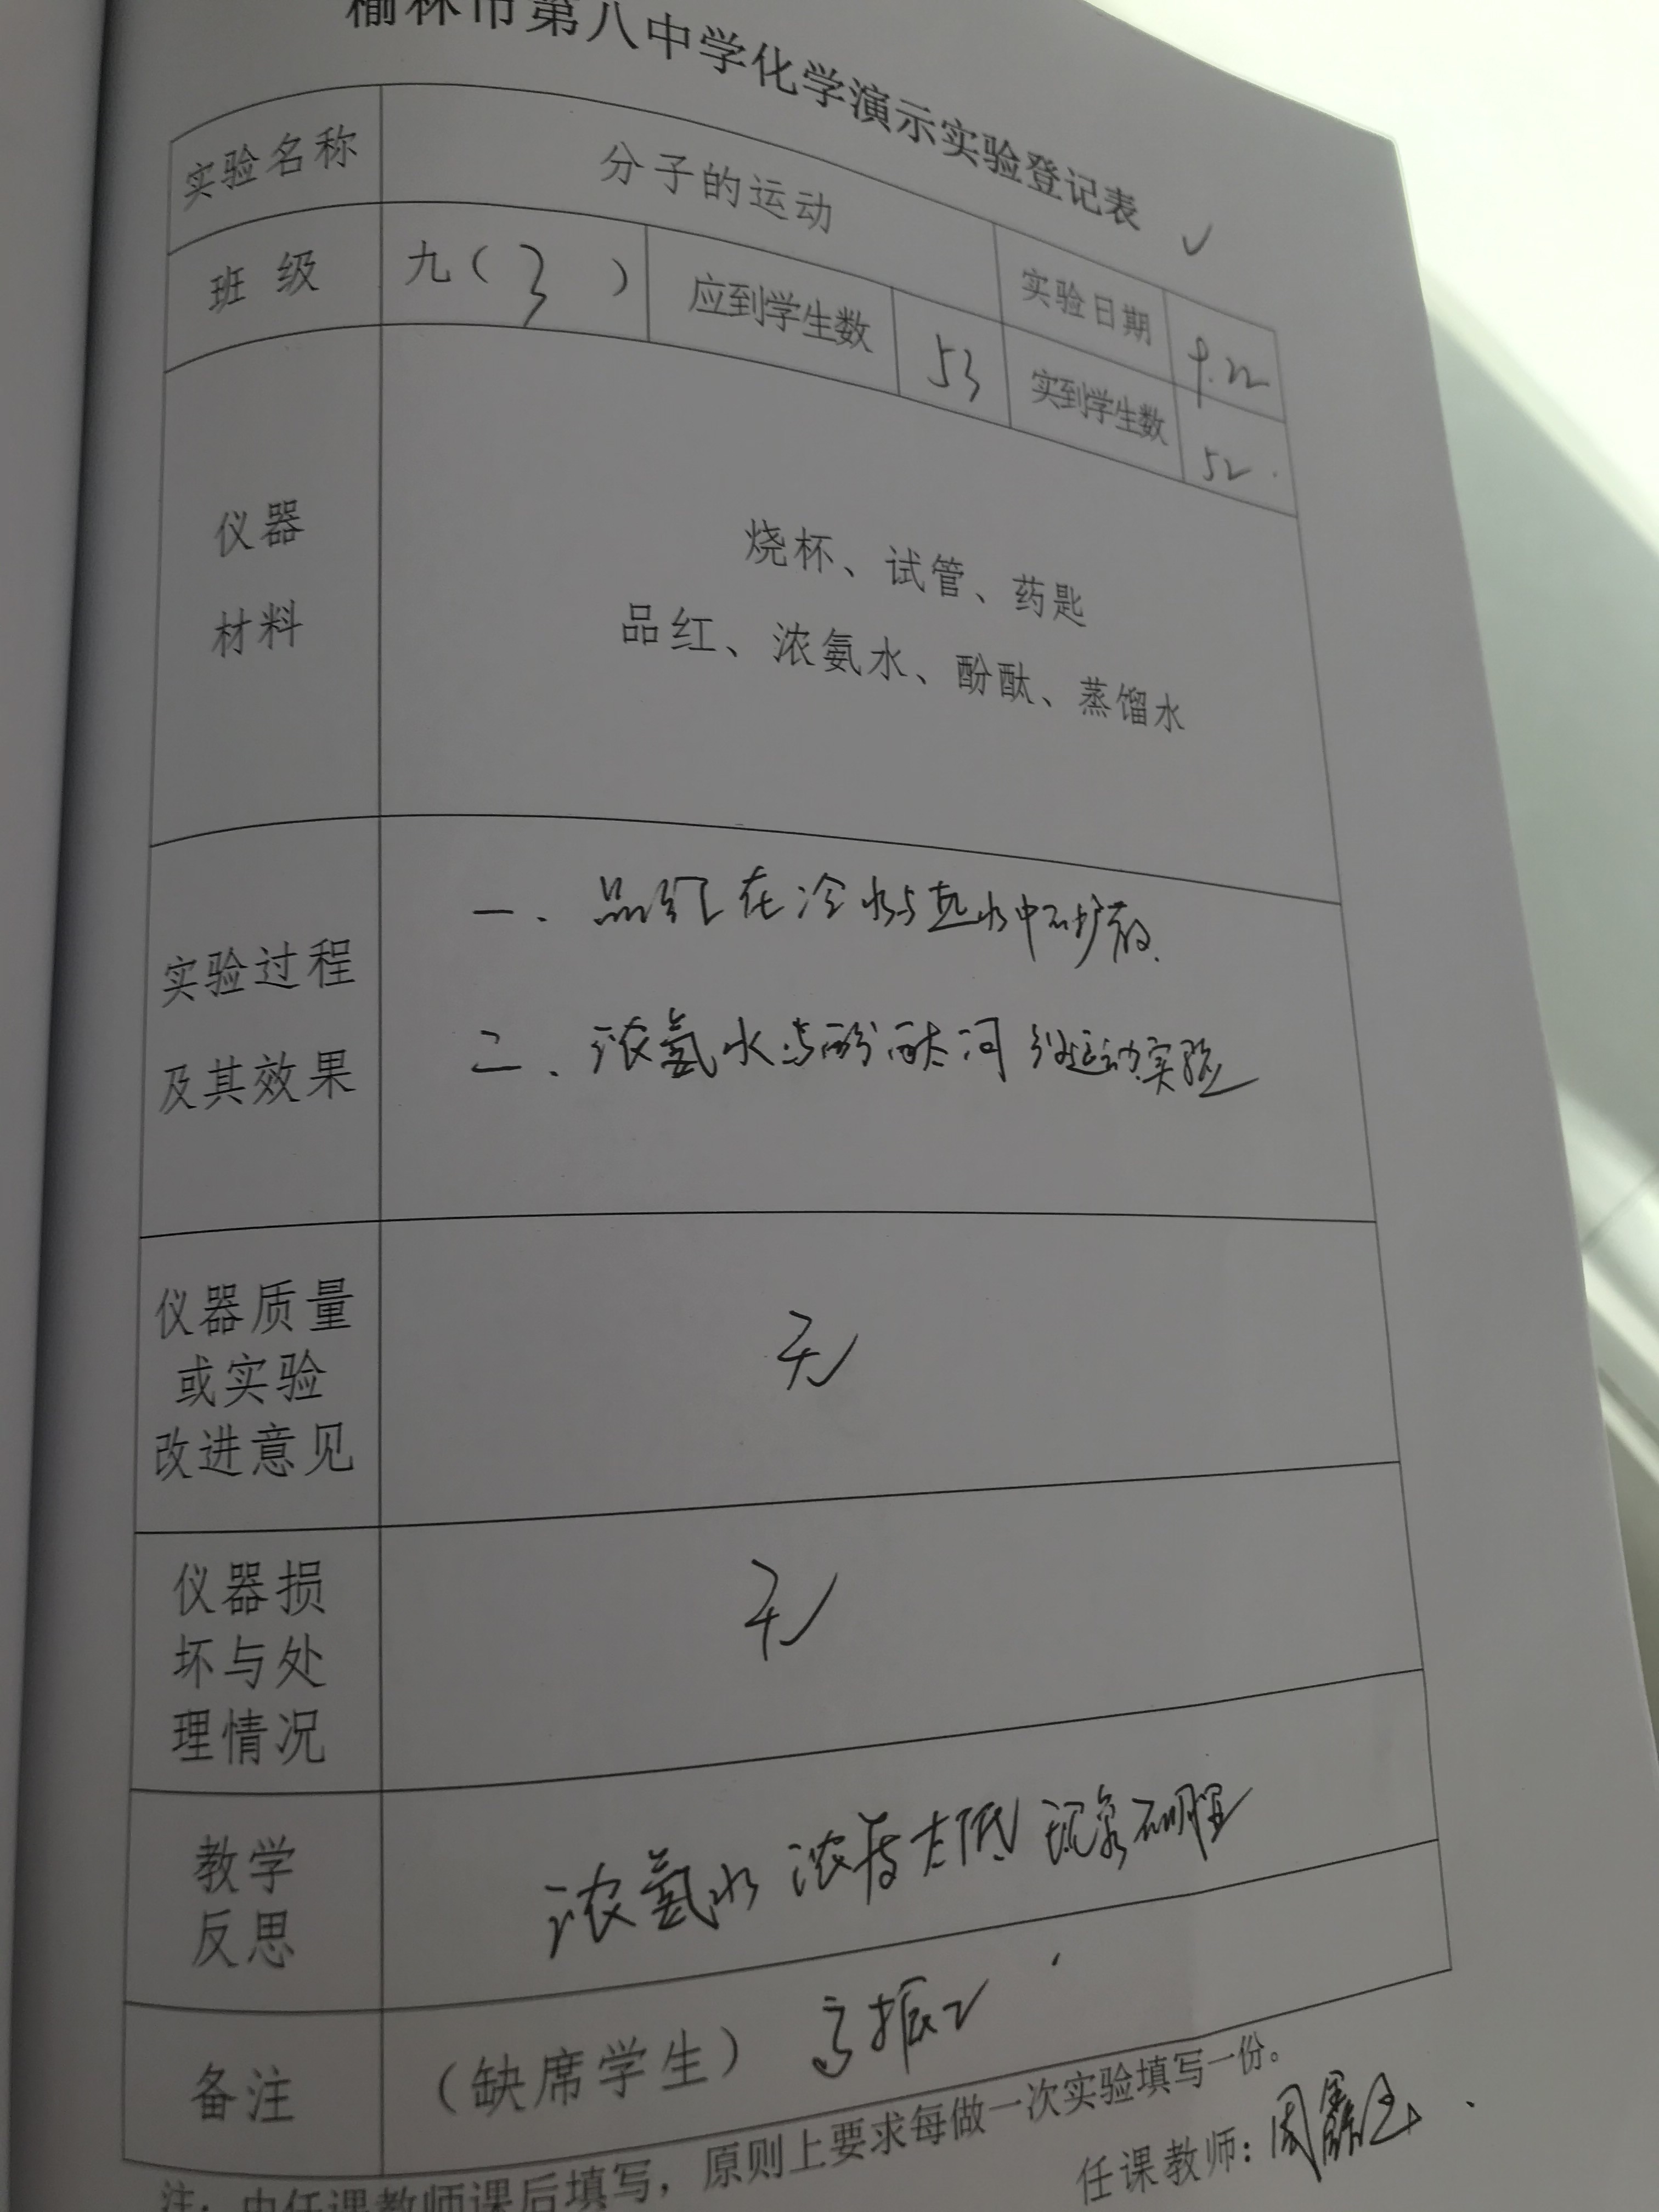 榆林市第八中学化学演示实验登记表
实验名称 分子的运动 实验日期 9.22
班 级 九（3） 应到学生数 53 实到学生数 52
仪器
材料
烧杯、试管、药匙
品红、浓氨水、酚酞、蒸馏水
实验过程
及其效果
一、品红在冷水与热水中的扩散.
二、浓氨水与酚酞间分子运动实验
仪器质量
或实验
改进意见
无
仪器损
坏与处
理情况
无
教学
反思
浓氨水浓度太低 现象不明显
备注 （缺席学生）
注：由任课教师课后填写，原则上要求每做一次实验填写一份。
任课教师：周